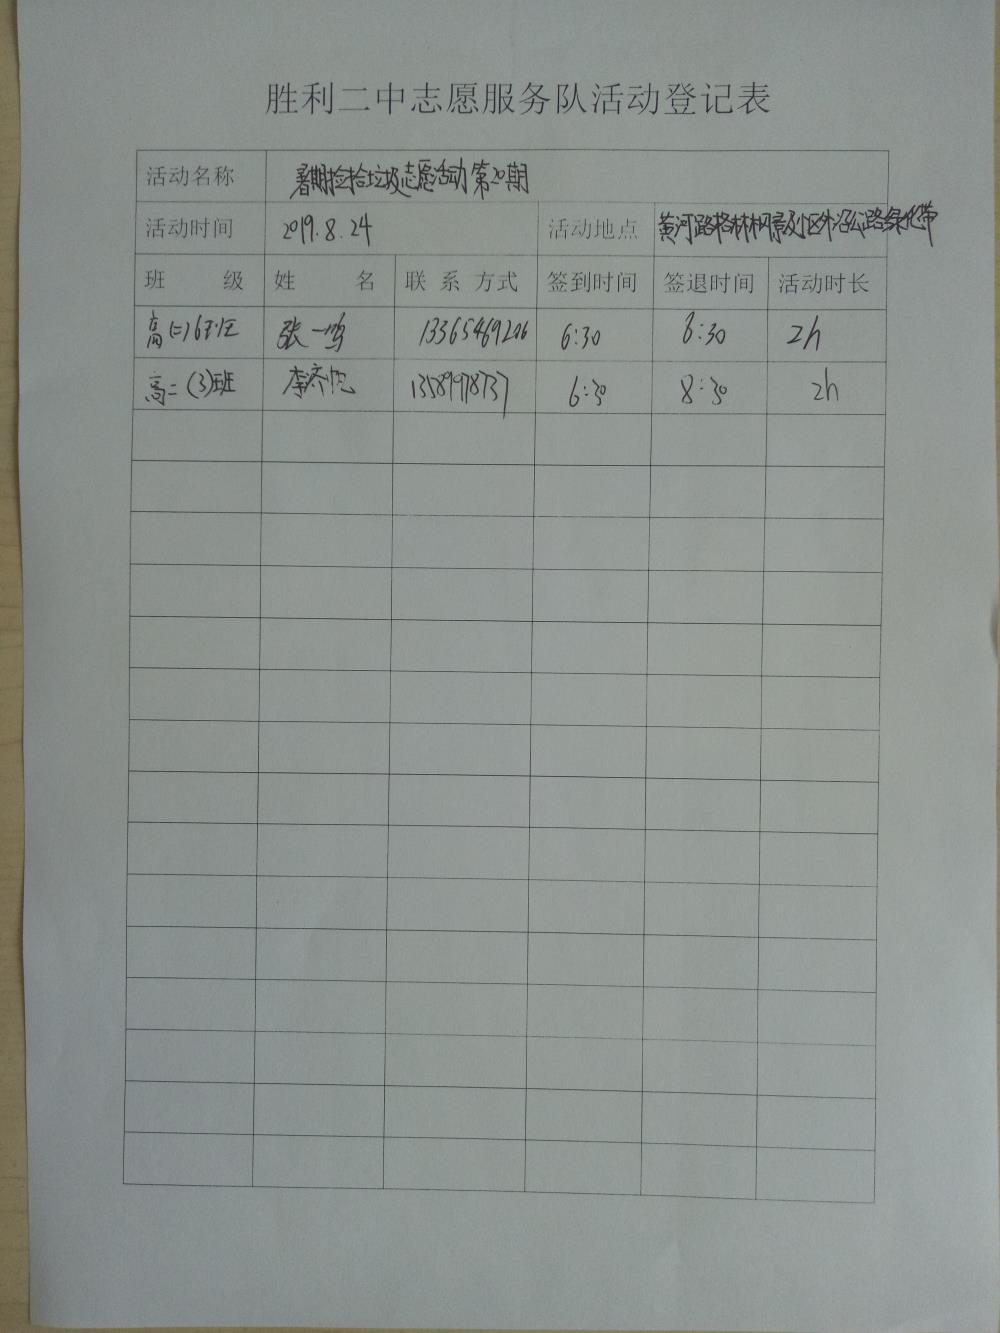 胜利二中志愿服务队活动登记表
活动名称 暑期捡拾垃圾志愿活动第20期
活动时间 2019.8.24 活动地点 黄河路格林风景及小区外沿公路绿化带
班 级 姓 名 联 系 方式 签到时间 签退时间 活动时长
高 班 张一鸣 13365469206 6:30 8:30 2h
高二(3)班 李 13589978737 6:30 8:30 2h